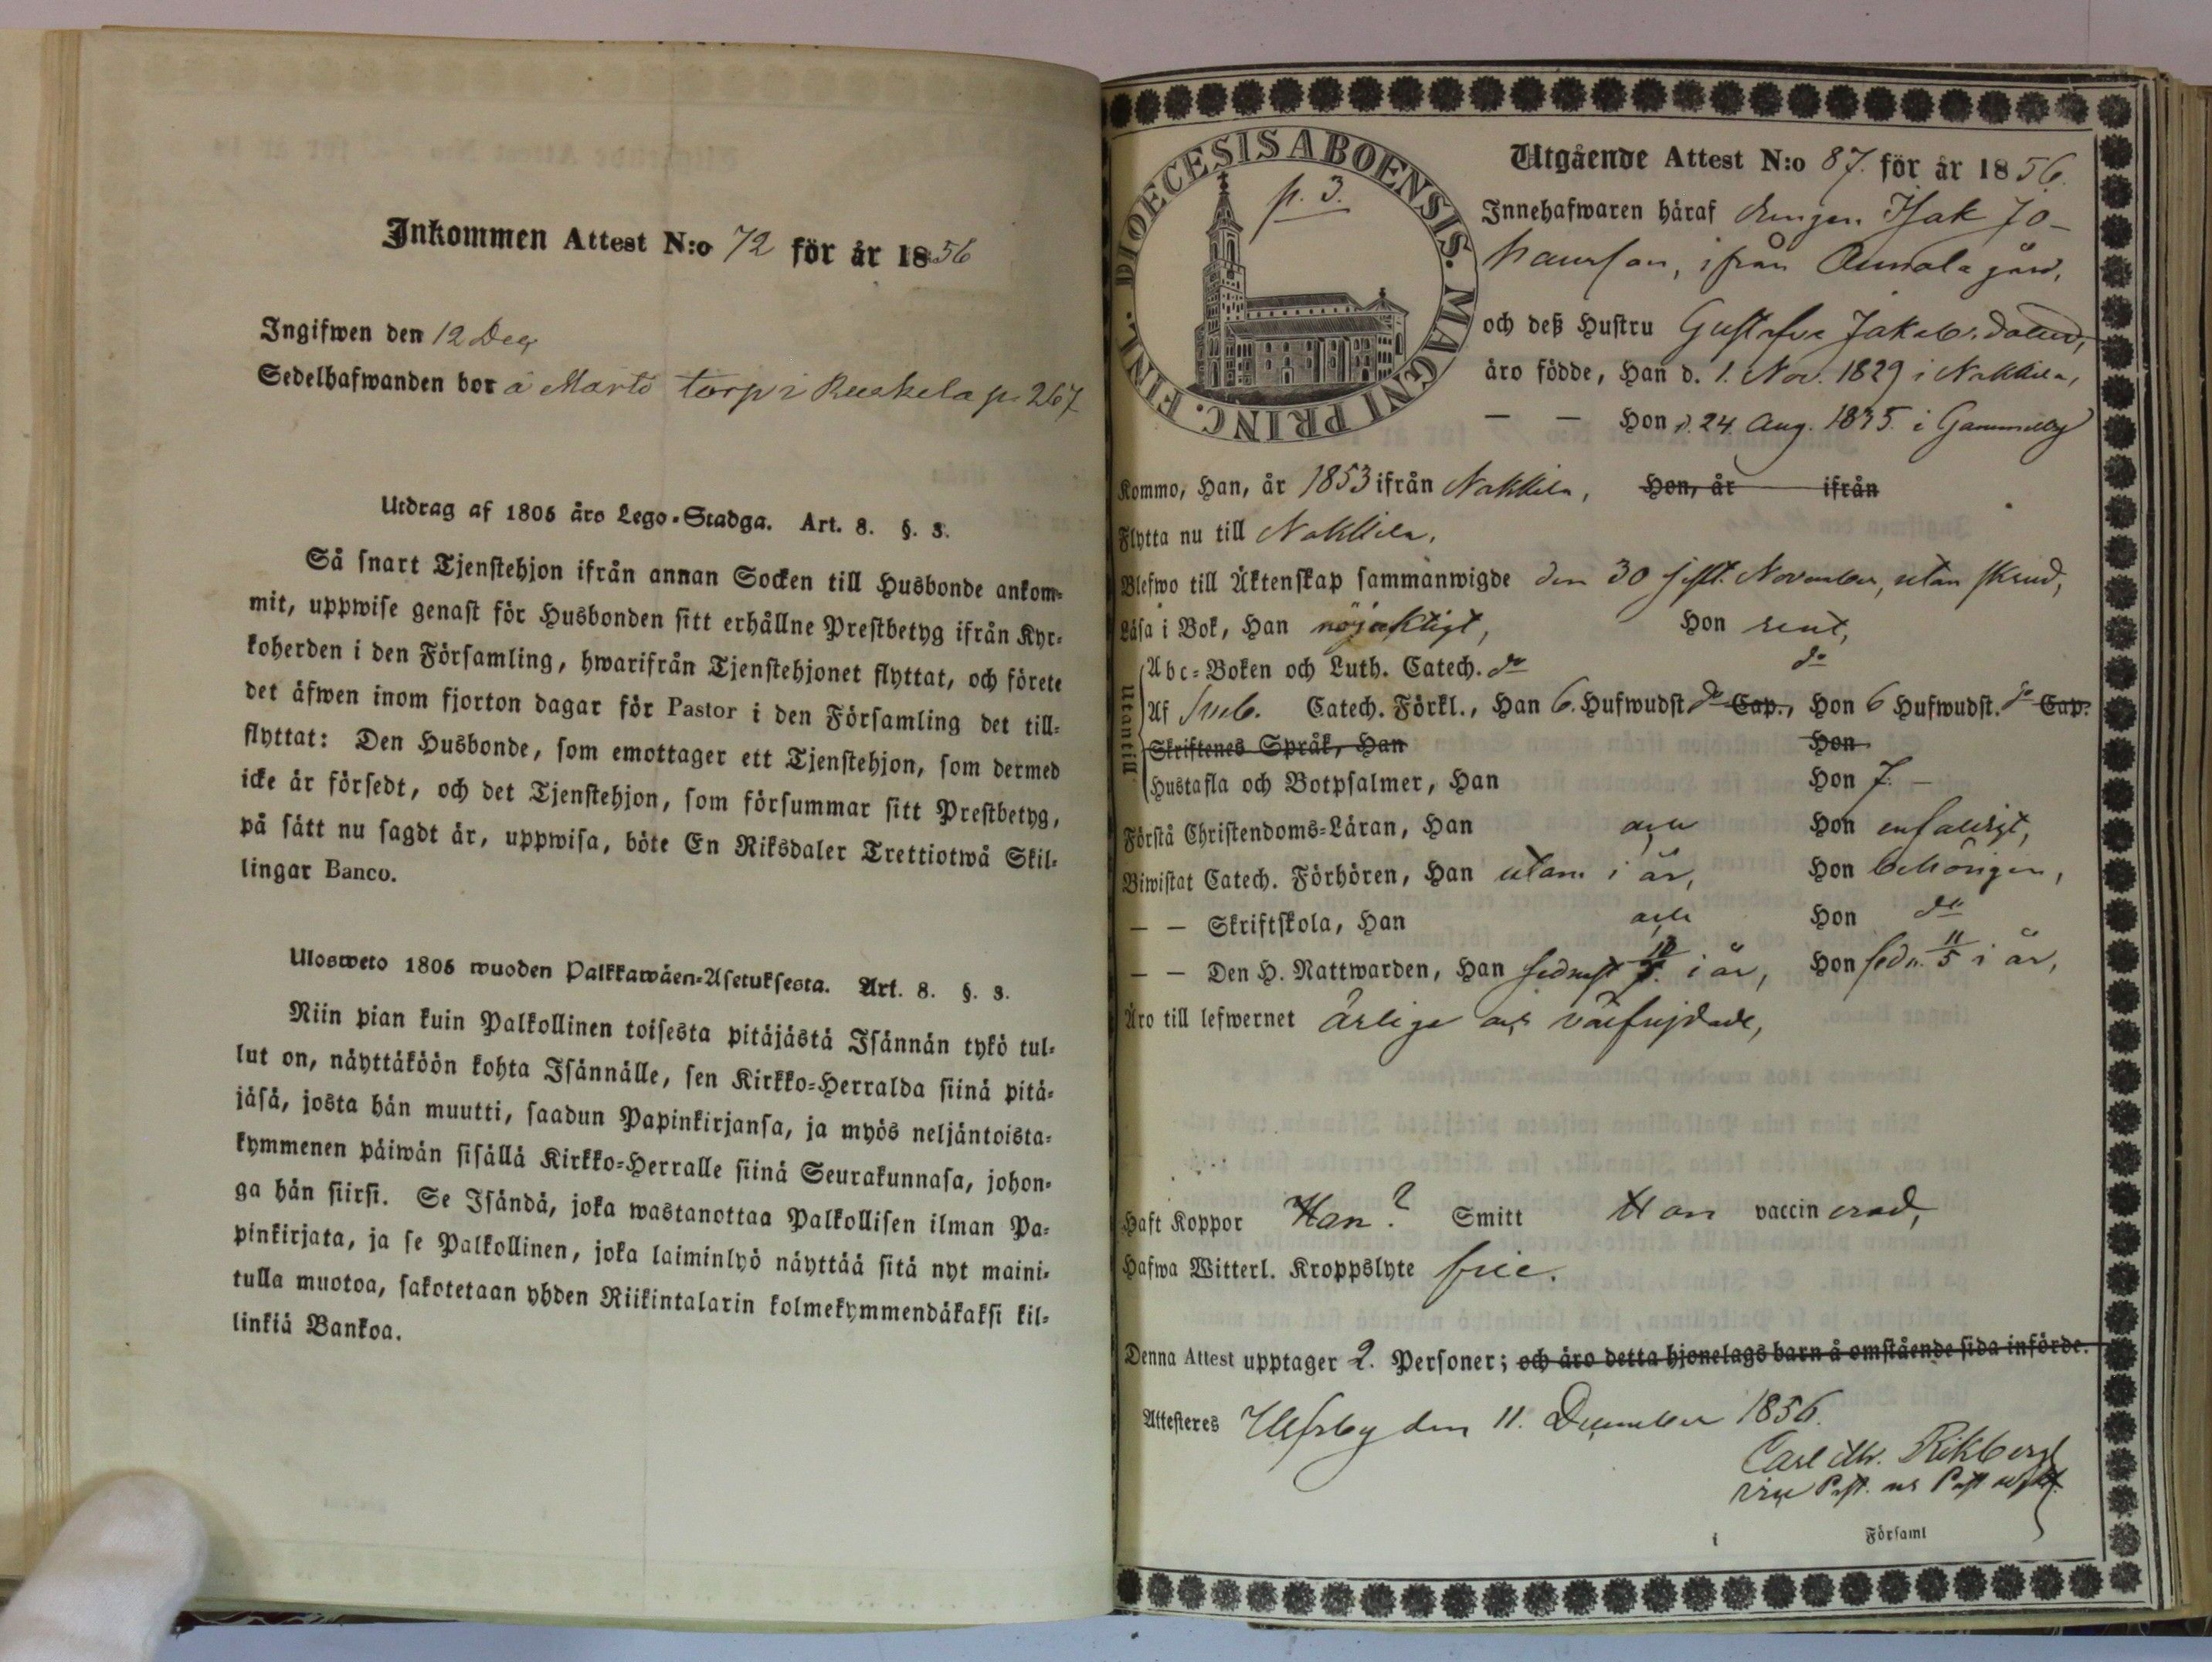 Inkommen Attest N:o 72 för år 1856
Ingifwen den 12 Dec
Sedelhafwanden bor å Marto torp i Ruskela p. 267
Utdrag af 1805 års Lego-Stadga. Art. 8. §. 3.
Så snart Tjenstehjon ifrån annan Socken till Husbonde ankom-
mit, uppwise genast för Husbonden sitt erhållne Prestbetyg ifrån Kyr-
koherden i den Församling, hwarifrån Tjenstehjonet flyttat, och förete
det äfwen inom fjorton dagar för Pastor i den Församling det till-
flyttat: Den Husbonde, som emottager ett Tjenstehjon, som dermed
icke är försedt, och det Tjenstehjon, som försummar sitt Prestbetyg,
på sätt nu sagdt är, uppwisa, böte En Riksdaler Trettiotwå Skil-
lingar Banco.
Ulosweto 1805 wuoden Palkkawäen-Asetuksesta. Art. 8. §. 3.
Niin pian kuin Palkollinen toisesta pitäjästä Isännän tykö tul-
lut on, näyttäköön kohta Isännälle, sen Kirkko-Herralda siinä pitä-
jäsä, josta hän muutti, saadun Papinkirjansa, ja myös neljäntoista-
kymmenen päiwän sisällä Kirkko-Herralle siinä Seurakunnasa, johon-
ga hän siirsi. Se Isändä, joka wastanottaa Palkollisen ilman Pa-
pinkirjata, ja se Palkollinen, joka laiminlyö näyttää sitä nyt maini-
tulla muotoa, sakotetaan yhden Riikintalarin kolmekymmendäkaksi kil-
linkiä Bankoa.
DIOECESIS ABOENSIS. MAGNI PRINC. FINL.
p. 3.
Utgående Attest N:o 87. för år 1856.
Innehafwaren häraf drengen Isak Jo-
hansson, ifrån Annala gård,
och deß Hustru Gustafva Jakobs dotter,
äro födde, Han d. 1. Nov. 1829 i Nakkila,
— — Hon d. 24 Aug. 1835. i Gammelby
Kommo, Han, år 1853 ifrån Nakkila, Hon, år ifrån
Flytta nu till Nakkila.
Blefwo till Äktenskap sammanwigde den 30 sistl. November, utan skrud,
Läsa i Bok, Han nöjaktigt, Hon rent,
Utantill
Abc-Boken och Luth. Catech. do do
Af Sueb. Catech. Förkl., Han 6. Hufwudst do Cap., Hon 6 Hufwudst. do Cap.
Skriftenes Språk, Han Hon
Hustafla och Botpsalmer, Han Hon 7. —
Förstå Christendoms-Läran, Han och Hon enfaldigt,
Biwistat Catech. Förhören, Han utom i år, Hon behörigen,
— — Skriftskola, Han och Hon do
— — Den H. Nattwarden, Han sednast i år, Hon sedn. 11/5 i år,
Äro till lefwernet ärlige och välfrejdade,
Haft Koppor Han? Smitt Hon vaccinerad,
Hafwa Witterl. Kroppslyte frie.
Denna Attest upptager 2. Personer; och äro detta hjonelags barn å omstående sida införde.
Attesteres Ulfsby den 11. December 1856.
Carl Rikberg
vice Past.
i Församl